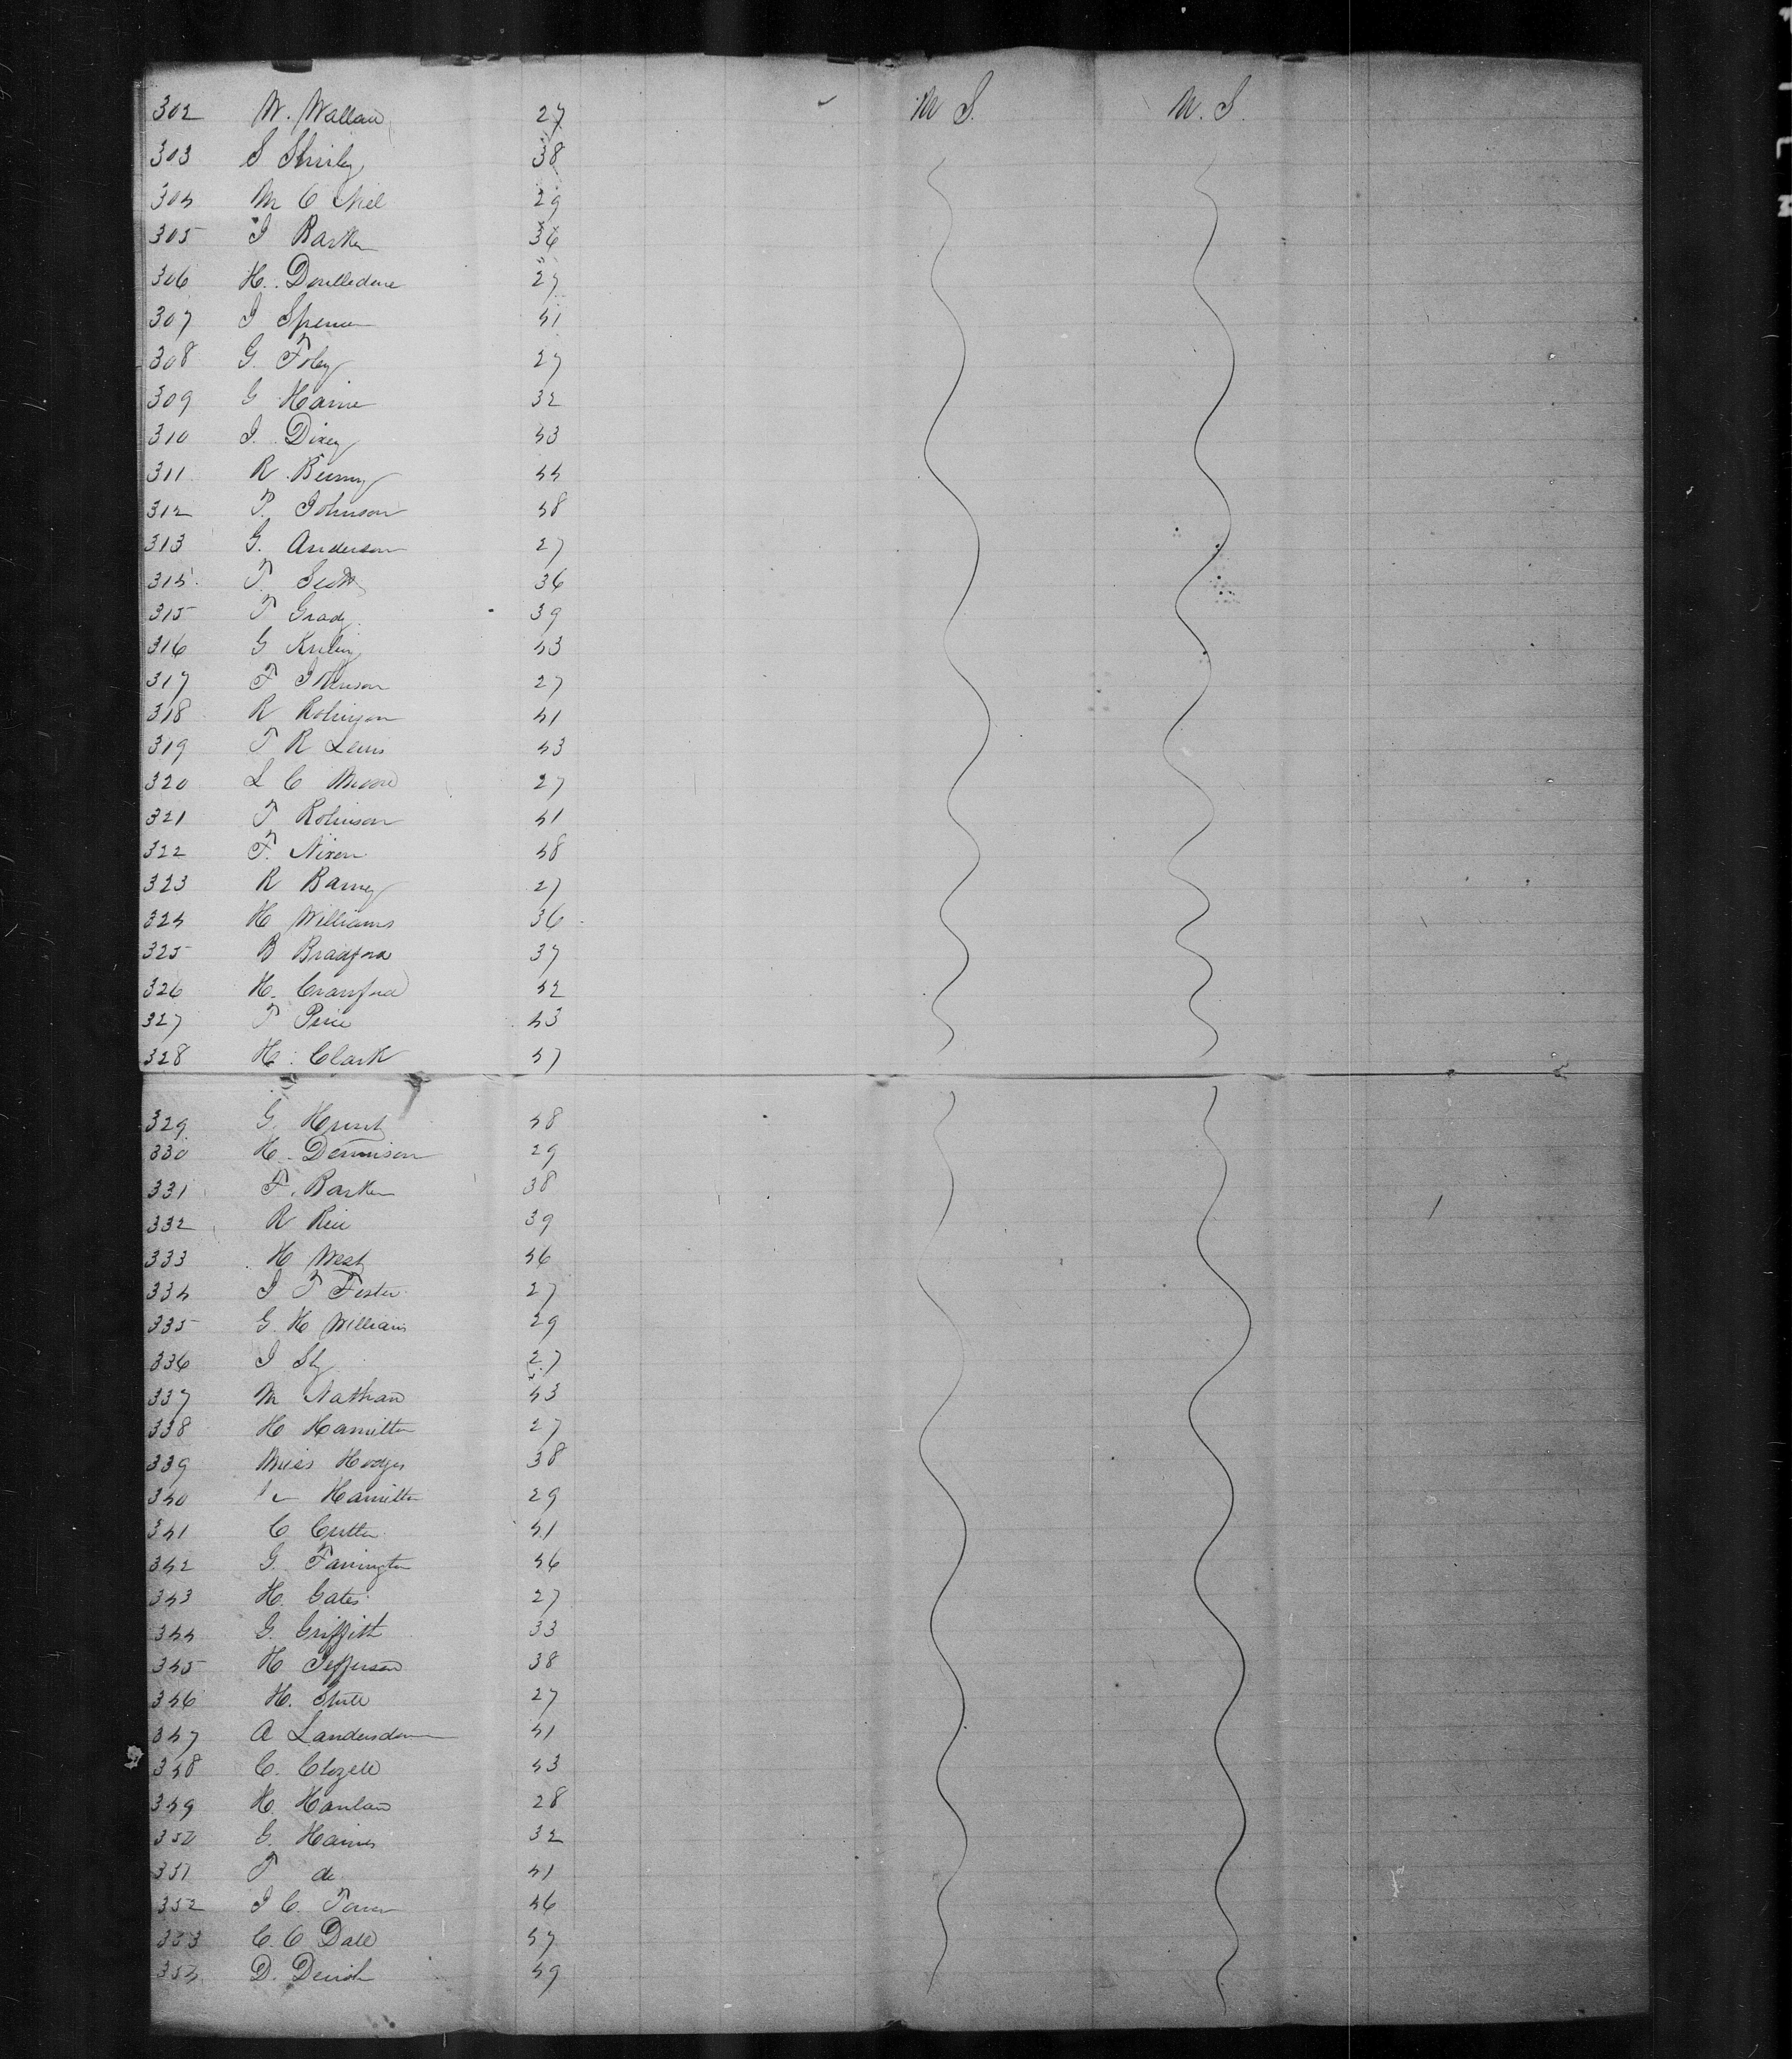 302 W. Wallace 27 M S. M. S.
303 S Shirly 38
304 M C Niel 29
305 J Barker 36
306 H. 27
307 J Spencer 41
308 G. Foley 27
309 G Haine 32
310 J. Dixey 43
311 R. 44
312 T. Johnson 48
313 G. Anderson 27
314 T. Scott 36
315 T Grady 39
316 G 43
317 F Johnson 27
318 R Robinson 41
319 T R Lewis 43
320 L C Moore 27
321 T Robinson 41
322 F. Nixon 48
323 R Barney 27
324 H Williams 36
325 B Bradford 37
326 H. Crawford 42
327 T Price 43
328 H. Clark 47
329 G. Hunt 48
330 H. Dennison 29
331 F. Barker 38
332 R Rice 39
333 H West 46
334 J T Foster 27
335 G. H Williams 29
336 J Sly 27
337 M Nathan 43
338 H Hamilton 27
339 Miss Hodges 38
340 " Hamilton 29
341 C Cutter 41
342 G. Farrington 46
343 H. Gates 27
344 G. Griffith 33
345 H Jefferson 38
346 H. 27
347 A 41
348 C. Clozell 43
349 H. Hanlan 28
350 G. Haines 32
351 T do 41
352 J C. 46
353 C. C Dale 47
354 D. 49